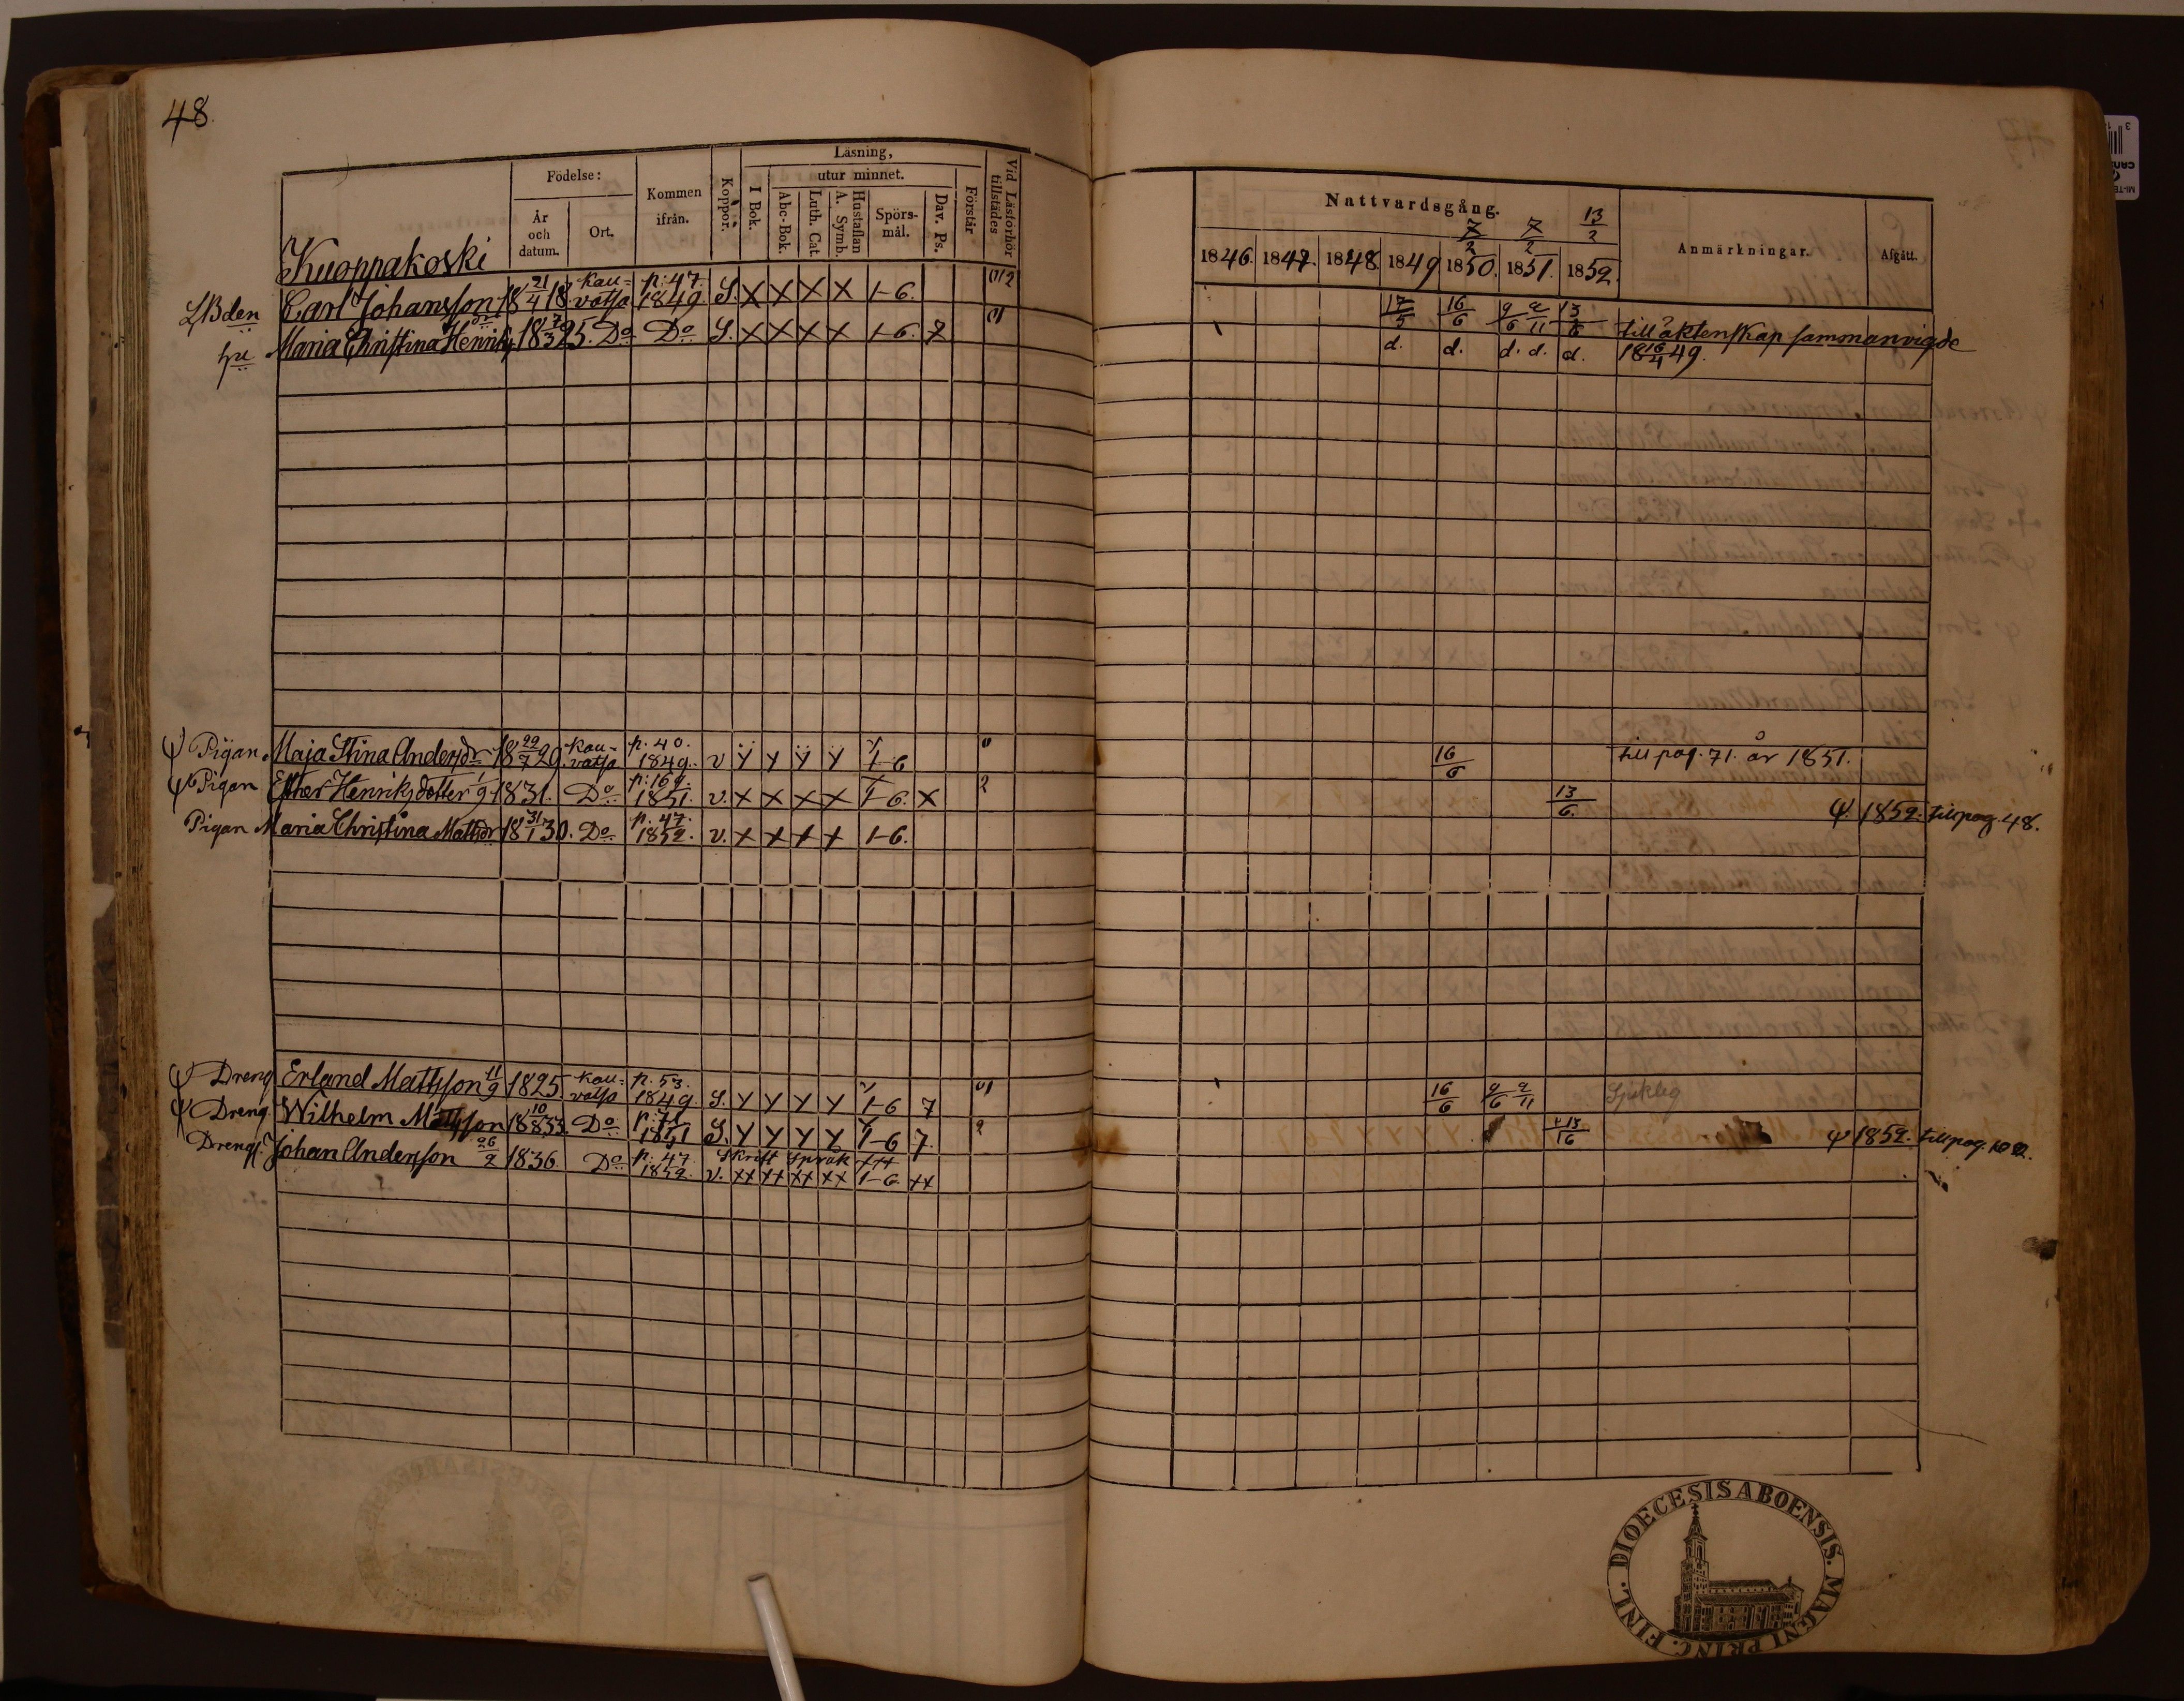 48.
Födelse:
Kommen ifrån.
Koppor.
Läsning,
I Bok.
utur minnet.
Abc-Bok.
Luth. Cat.
Hustaflan A. Symb.
Spörsmål.
Dav. Ps.
Förstår
Vid Läsförhör tillstädes
År och datum.
Ort.
Nattvardsgång.
7/2 7/2 13/2
1846. 1847. 1848. 1849 1850. 1851. 1852.
Anmärkningar.
Afgått.
Kuoppakoski
LBden Carl Johansson 18 21/4 18. Kauvatsa p: 47. 1849 S. X X X X 1-6. 012 17/5 16/6 9/6 2/11 13/6
hu Maria Christina Henriksdr 18 7/3 25. Do Do S. X X X X 1-6. 7 01 d. d. d. d. d. till äktenskap sammanvigde
18 16/4 49.
ψ Pigan Maja Stina Andersdr 18 22/7 29. Kauvatsa p. 40. 1849. v Y Y Y Y 1-6 0 16/6 till pag. 71. år 1851.
ψ Pigan Esther Henriksdotter 1/9 1831. Do p: 169. 1851. v. X X X X 1-6. X 2 13/6. ψ. 1852. till pag. 48.
Pigan Maria Christina Mattsdr 18 31/1 30. Do p. 47. 1852. v. X X X X 1-6.
ψ Dreng Erland Mattsson 11/9 1825. Kauvatsa p. 53. 1849 S. Y Y Y Y 1-6 7 01 16/6 9/6 2/11 Sjuklig
ψ Dreng. Wilhelm Mattsson 18 10/8 33. Do p: 71 1851 S. Y Y Y Y 1-6 7. 2 13/16 ψ 1852. till pag. 102.
Drengs. Johan Andersson 26/2 1836 Do p. 47. 1852. v. Skrift Språk
XX XX XX XX 1-6 XX
FINL. DIOECESIS ABOENSIS. MAGNI PRINC.